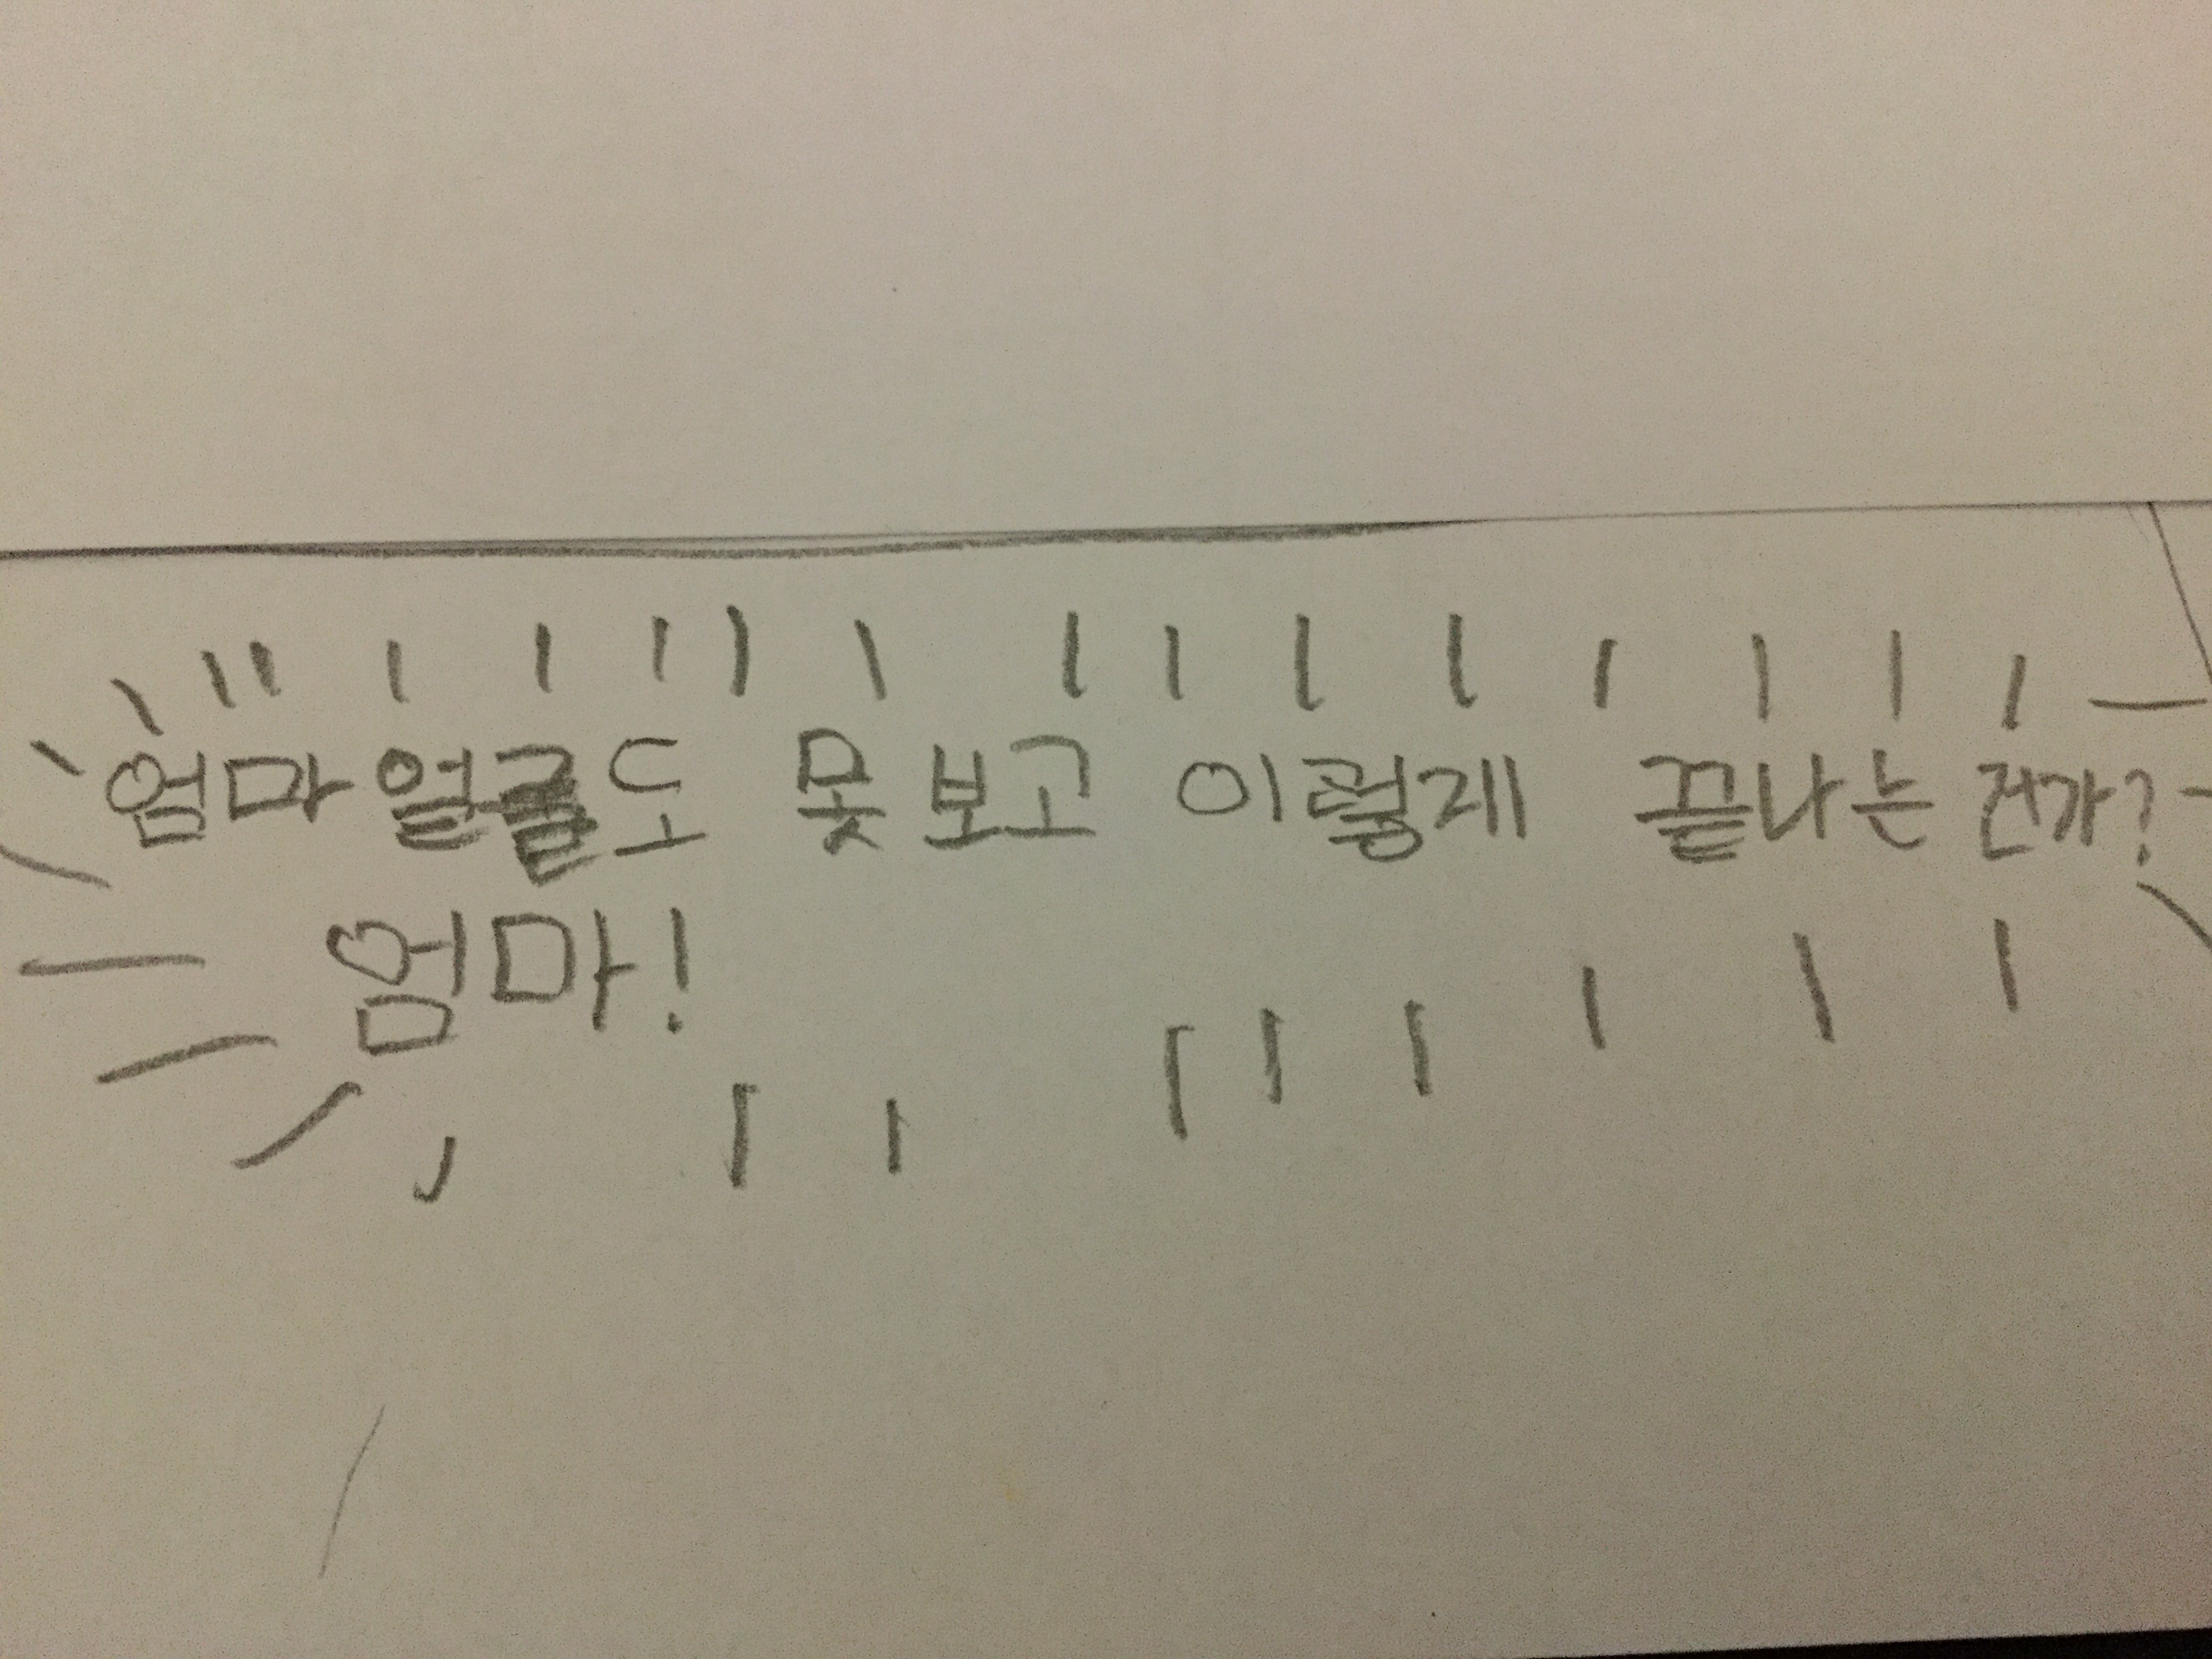 엄마 얼굴도 못보고 이렇게 끝나는 건가?
엄마!